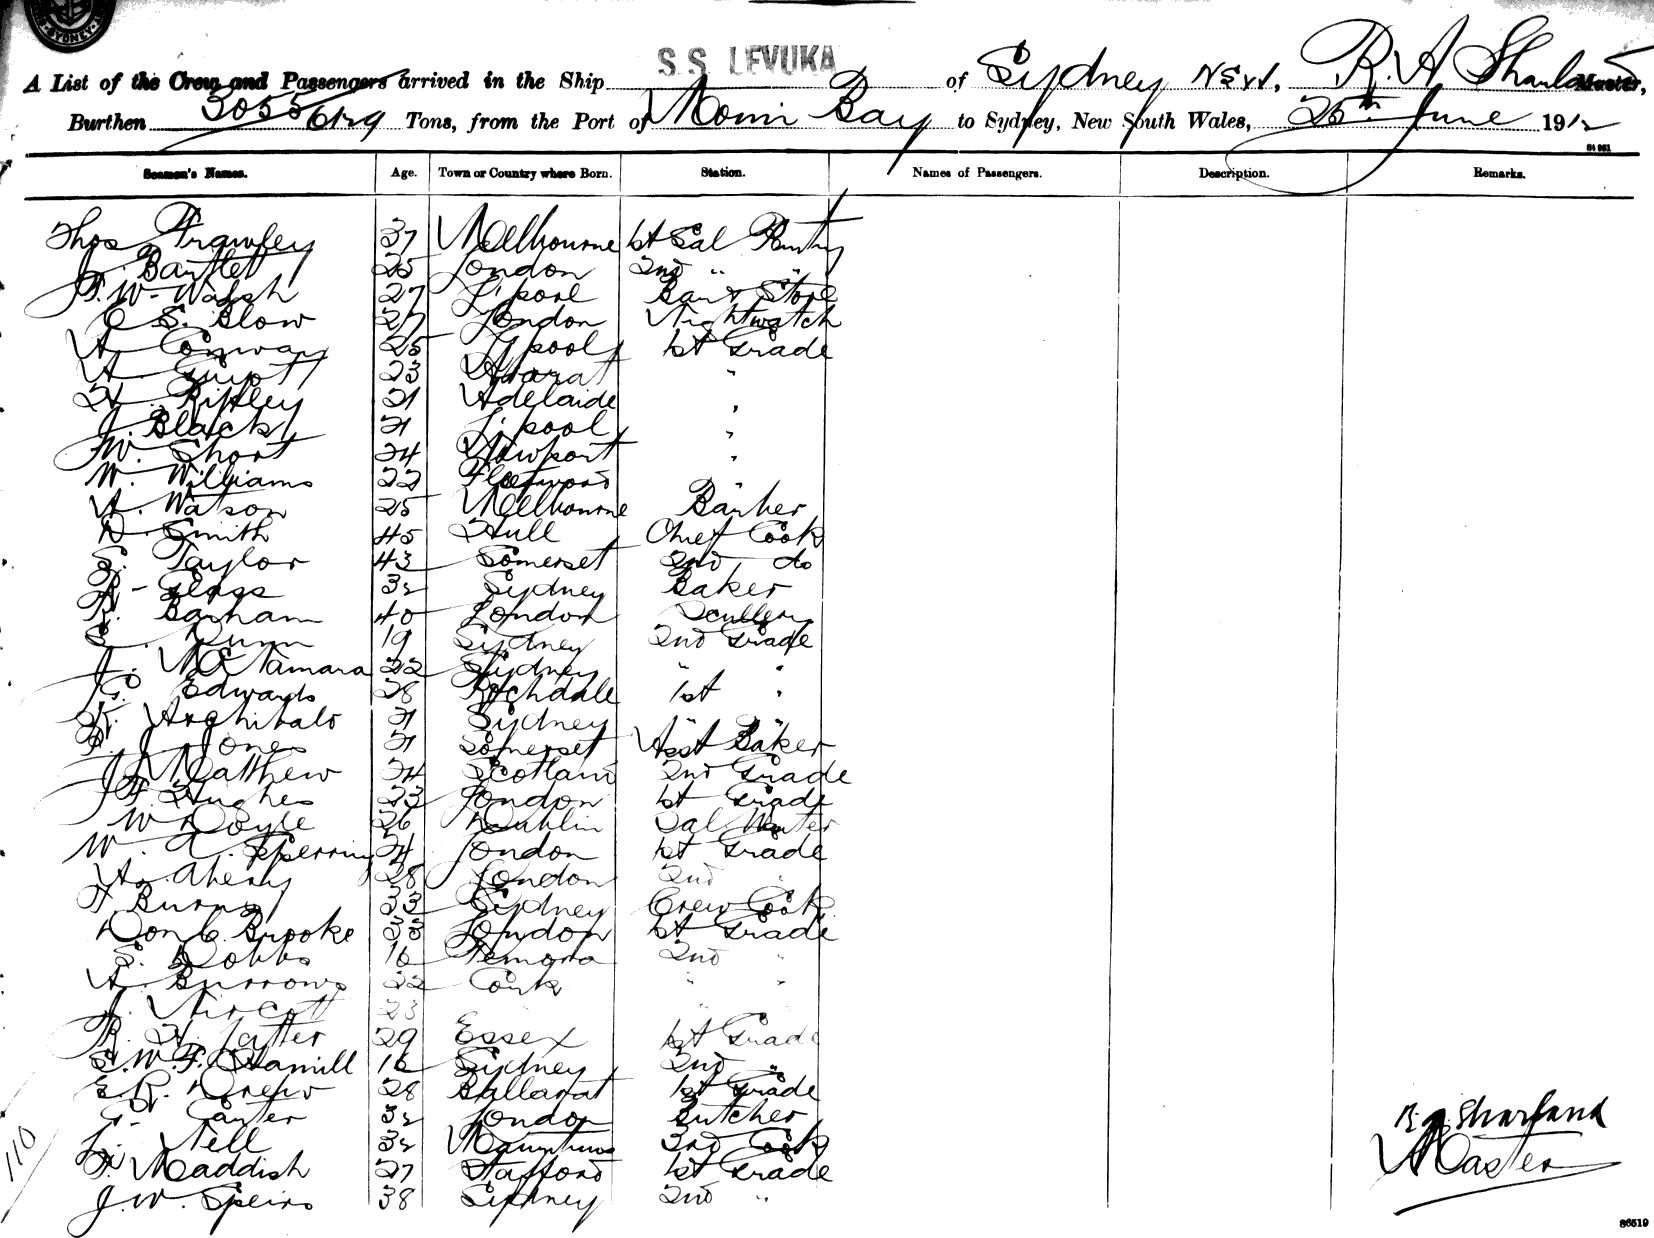 SYDNEY
S.S. LEVUKA
A List of the Crew and Passengers arrived in the Ship of Sydney NSW, R. A. Sharland Master,
Burthen 3055 Tons, from the Port of Momi Bay to Sydney, New South Wales, 26th June 1912
Seamen's Names. Age. Town or Country where Born. Station. Names of Passengers. Description. Remarks.
Thos Frawley 37 Melbourne 1st Sal Pantry
J. Bartlett 25 London 2nd " "
F. W. Walsh 27 L'pool Bar & Store
C S. Blow 27 London Nightwatch
A. Conway 25 L'pool 1st Grade
A. 23 Ararat "
H. Ripley 21 Adelaide "
J. Black 21 L'pool "
W. Short 24 Newport "
W. Williams 22 Fleetwood "
A. Watson 25 Melbourne Barber
D. Smith 45 Hull Chief Cook
S. Taylor 43 Somerset 2nd do
A. Glass 32 Sydney Baker
R. Barham 40 London Scullery
E. Dunn 19 Sydney 2nd Grade
J. McNamara 22 Sydney " "
G. Edwards 28 Rochdale 1st "
R. Archibald 21 Sydney " "
F. J. Jones 21 Somerset Asst Baker
J. Matthew 24 Scotland 2nd Grade
J. F. Hughes 23 London 1st Grade
W Doyle 26 Dublin Sal Waiter
W. A. Sperring 24 London 1st Grade
A. Aherly 28 London 2nd "
F Burns 33 Sydney Crew Cook
Don C. Brooke 33 London 1st Grade
S. Dobbs 16 Temora 2nd "
A. Burrows 22 Cork " "
J. 23 " "
R. H. 29 Essex 1st Grade
S. W. F. Hamill 16 Sydney 2nd "
E R. Drew 28 Ballarat 1st Grade
G. Carter 32 London Butcher
L. Nell 32 3rd Cook
F. Maddish 27 Stafford 1st Grade
J. W. Speirs 38 Sydney 2nd "
R. A. Sharland
Master
110
84 951
86519